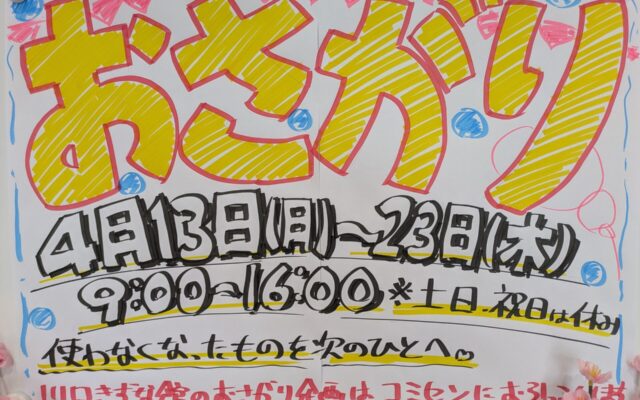 おさがり
4月13日(月)～23日(木)
9:00～16:00 ※土日・祝日は休み
使わなくなったものを次のひとへ♡
川口きずな館のおさがり企画は、コミセンに